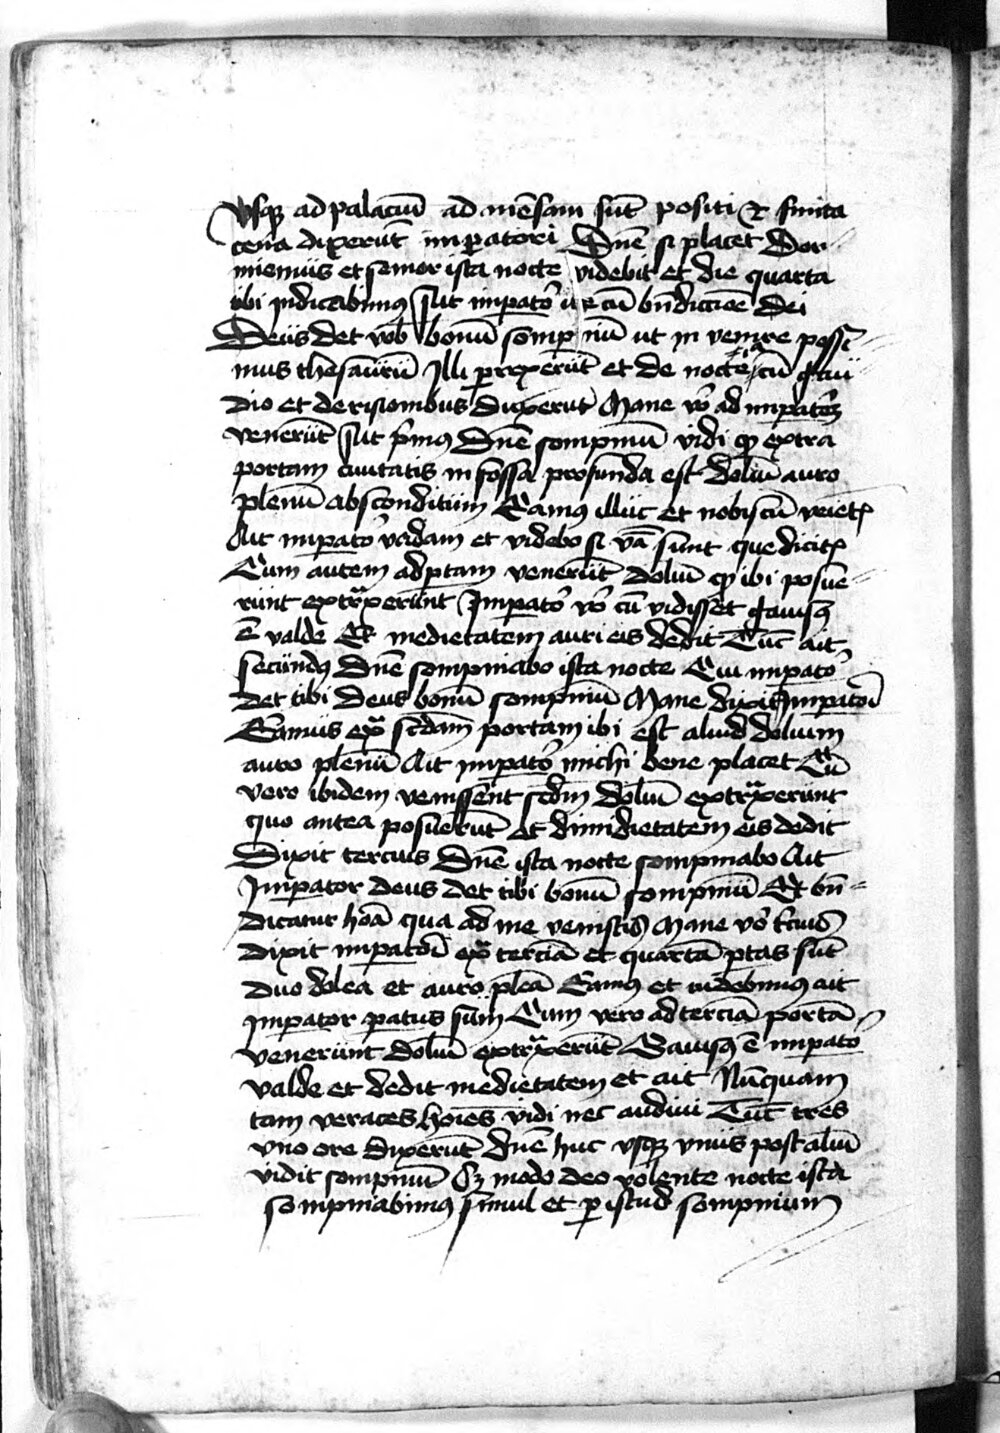 vsqꝫ ad palaciū ad mēsam sūt positi & finita
cena dixerūt impatori Dnē si placet Dor⸗
miemus et senior ista nocte videbit et die quarta
tibi indicabimus Ait impator ite cū bndiccioē dei
Deus det vob bonū sompniū ut in venire possi⸗
mus thesaurū Illi prexerūt et de nocte cū gau⸗
dio et derisionibus duxerūt Mane vo ad impatorē
venerūt Ait pmus Dnē sompniū vidi qp extra
portam ciuitatis in fossa profunda est doliū auro
plenū absconditum Eamus illuc et nobiscū veiet
Ait impator vadam et videbo si va sunt que dicit
Cum autem ad ptam venerūt doliū qp ibi posue⸗
runt extraxerunt Impator vo cū vidisset gauisus
ē valde Et medietatem auri eis dedit Tūc ait
secundus Dnē sompniabo ista nocte Cui impator
det tibi deus bonū sompniū Mane dixit impatori
Eamus ext scdam portam ibi est aliud dolium
auro plenū Ait impator michi bene placet Cū
vero ibidem venissent scdm doliū extraxerunt
quo antea posuerūt Et dimidietatem eis dedit
Dixit tercius Dnē ista nocte sompniabo Ait
Imperator deus det tibi bonū sompniū Et bn⸗
dicatur hora qua ad me venistis Mane vo tcius
dixit impatori ext terciā et quartā ptas sūt
duo dolea et auro plea Eamus et videbimus ait
Imperator patus sum Cum vero ad terciā portā
venerunt doliū extraxerūt Gauisus ē impator
valde et dedit medietatem et ait Nūquam
tam veraces hoies vidi nec audiui Tūc tres
vno ore dixerūt dnē huc vsqꝫ vnus post aliū
vidit sompniū Sꝫ modo deo volente nocte ista
sompniabimus simul et p istud sompnium